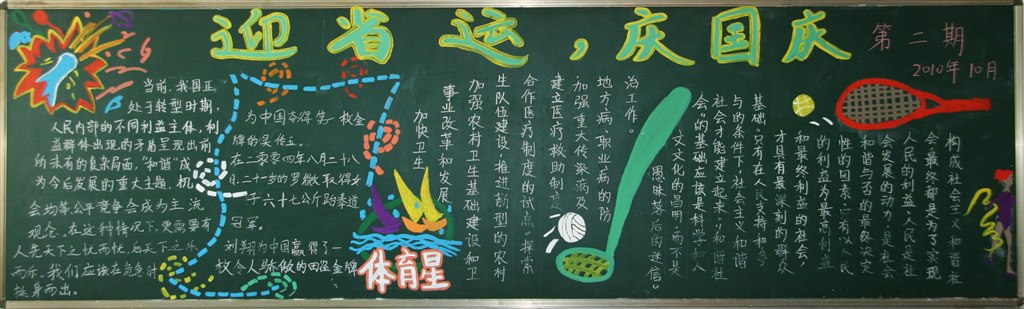 迎省运，庆国庆
第二期
2010年10月
当前，我国正
处于转型时期，
人民内部的不同利益主体，利
益群体出现的矛盾呈现出前
所未有的复杂局面，“和谐”成
为今后发展的重大主题，机
会均等，公平竞争会成为主流
观念。在这种情况下，更需要有
人先天下之忧而忧，后天下之乐
而乐，我们应该在危急时
挺身而出。
为中国夺得第一枚金
牌的吴
在二零零四年八月二十八
日，二十一岁的罗微取得女
子六十七公斤跆拳道
冠军。
刘翔为中国赢得了一
枚令人骄傲的田径金牌
体育星
加快卫生
事业改革和发展
加强农村卫生基础建设和卫
生队伍建设，推进新型的农村
合作医疗制度的试点，探索
建立医疗救助制度
，加强重大传染病及
地方病，职业病的防
治工作。
构成社会主义和谐社
会，最终都是为了实现
人民的利益，人民是社
会发展的动力，是社会
和谐与否的最终决定
性的因素，只有以人民
的利益为最高利益
和最终利益的社会，
才具有最深刻的群众
基础，只有在人民支持和参
与的条件下，社会主义和谐
社会才能建立起来，和谐社
会的基础应该是科学和人
文文化的昌明，而不是
愚昧落后的迷信。